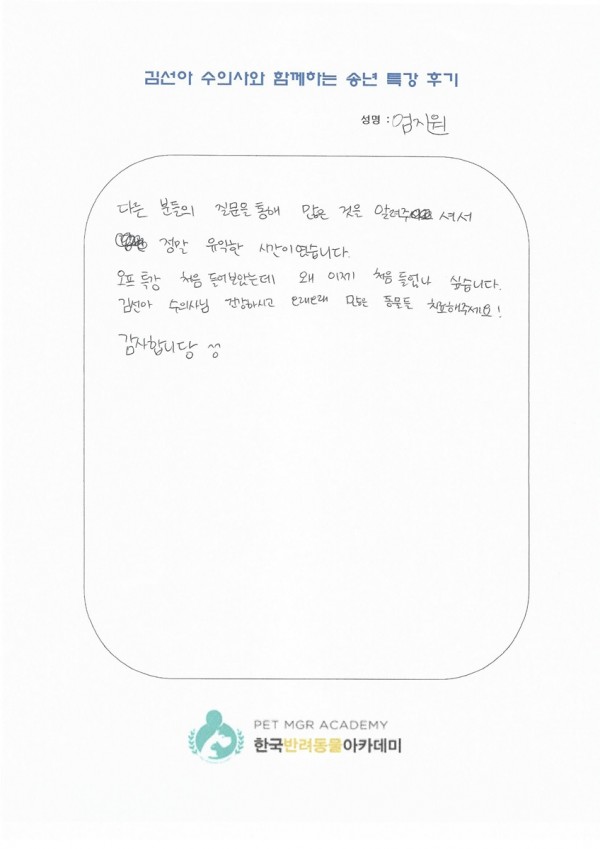 김선아 수의사와 함께하는 송년 특강 후기
성명 : 엄지원
다른 분들의 질문을 통해 많은 것을 알려주셔서
정말 유익한 시간이였습니다.
오프 특강 처음 들어보았는데 왜 이제 처음 들었나 싶습니다.
김선아 수의사님 건강하시고 오래오래 많은 동물들 치료해주세요!
감사합니당
PET MGR ACADEMY
한국반려동물아카데미